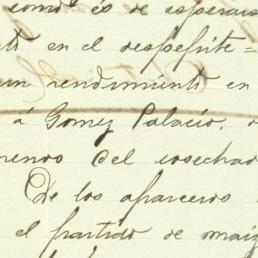 como es de esperars
en el desperfite=
un rendimiento en
á Gomez Palacio.
menos del cosechad
De los aparceros
el partido de maiz